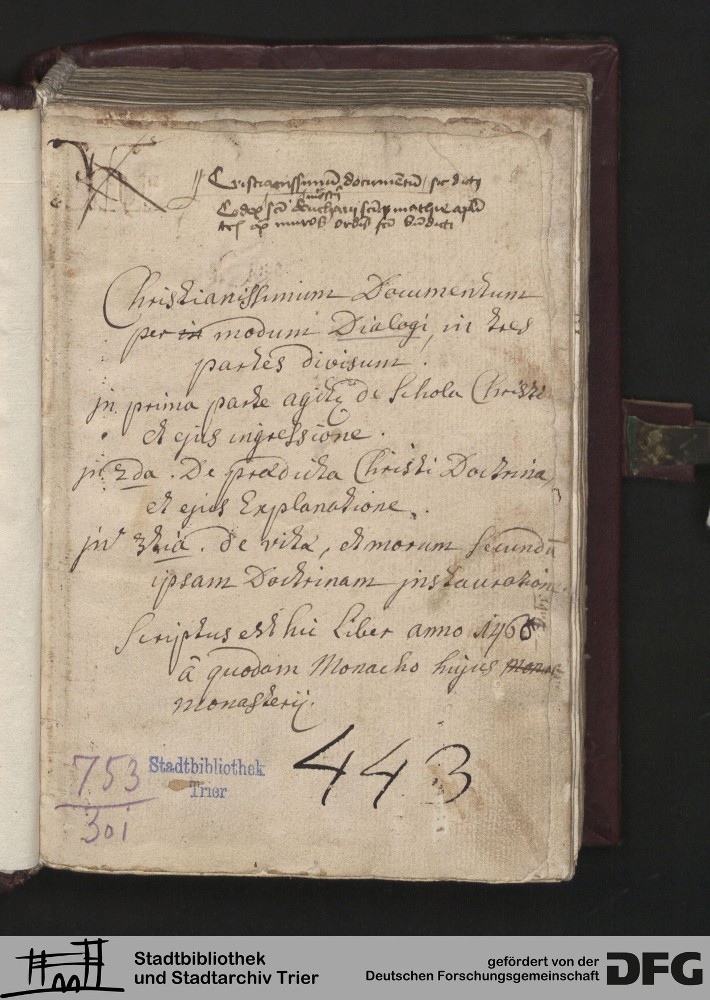 Cristianissimū documētū / sic dictū
Codex scī Eucharii scīq mathie apli
ex muros ordīs scī Bn̄dicti
Christianissimum Documentum
per in modum Dialogi, in tres
partes divisum.
jn prima parte agitr de Schola Christi
et ejus ingressione.
jn 2da. De prædicta Christi Doctrina,
et ejus Explanatione.
jn 3tiâ. de vita, et morum secundū
ipsam Doctrinam jnstauratione.
Scriptus est hic Liber anno 1468
â quodam Monacho hujus monas
monasterij.
443
753
301
Stadtbibliothek
Trier
Stadtbibliothek
und Stadtarchiv Trier
gefördert von der
Deutschen Forschungsgemeinschaft
DFG